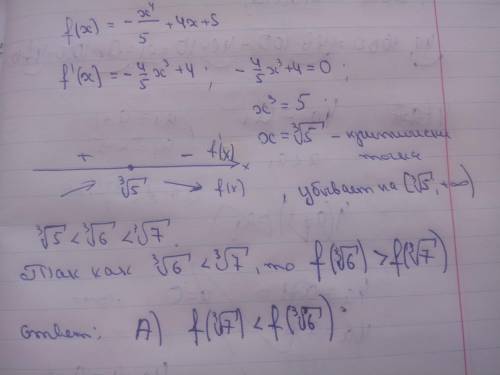 f(x) = -x⁴/5 + 4x + 5
f'(x) = -4/5 x³ + 4 ; -4/5 x³ + 4 = 0 ;
x³ = 5
x = ∛5 - критическ точка
+ - f'(x) x
∛5 f(x)
, убывает на (∛5; +∞)
∛5 < ∛6 < ∛7.
Так как ∛6 < ∛7, то f(∛6) > f(∛7)
ответ: А) f(∛7) < f(∛6)